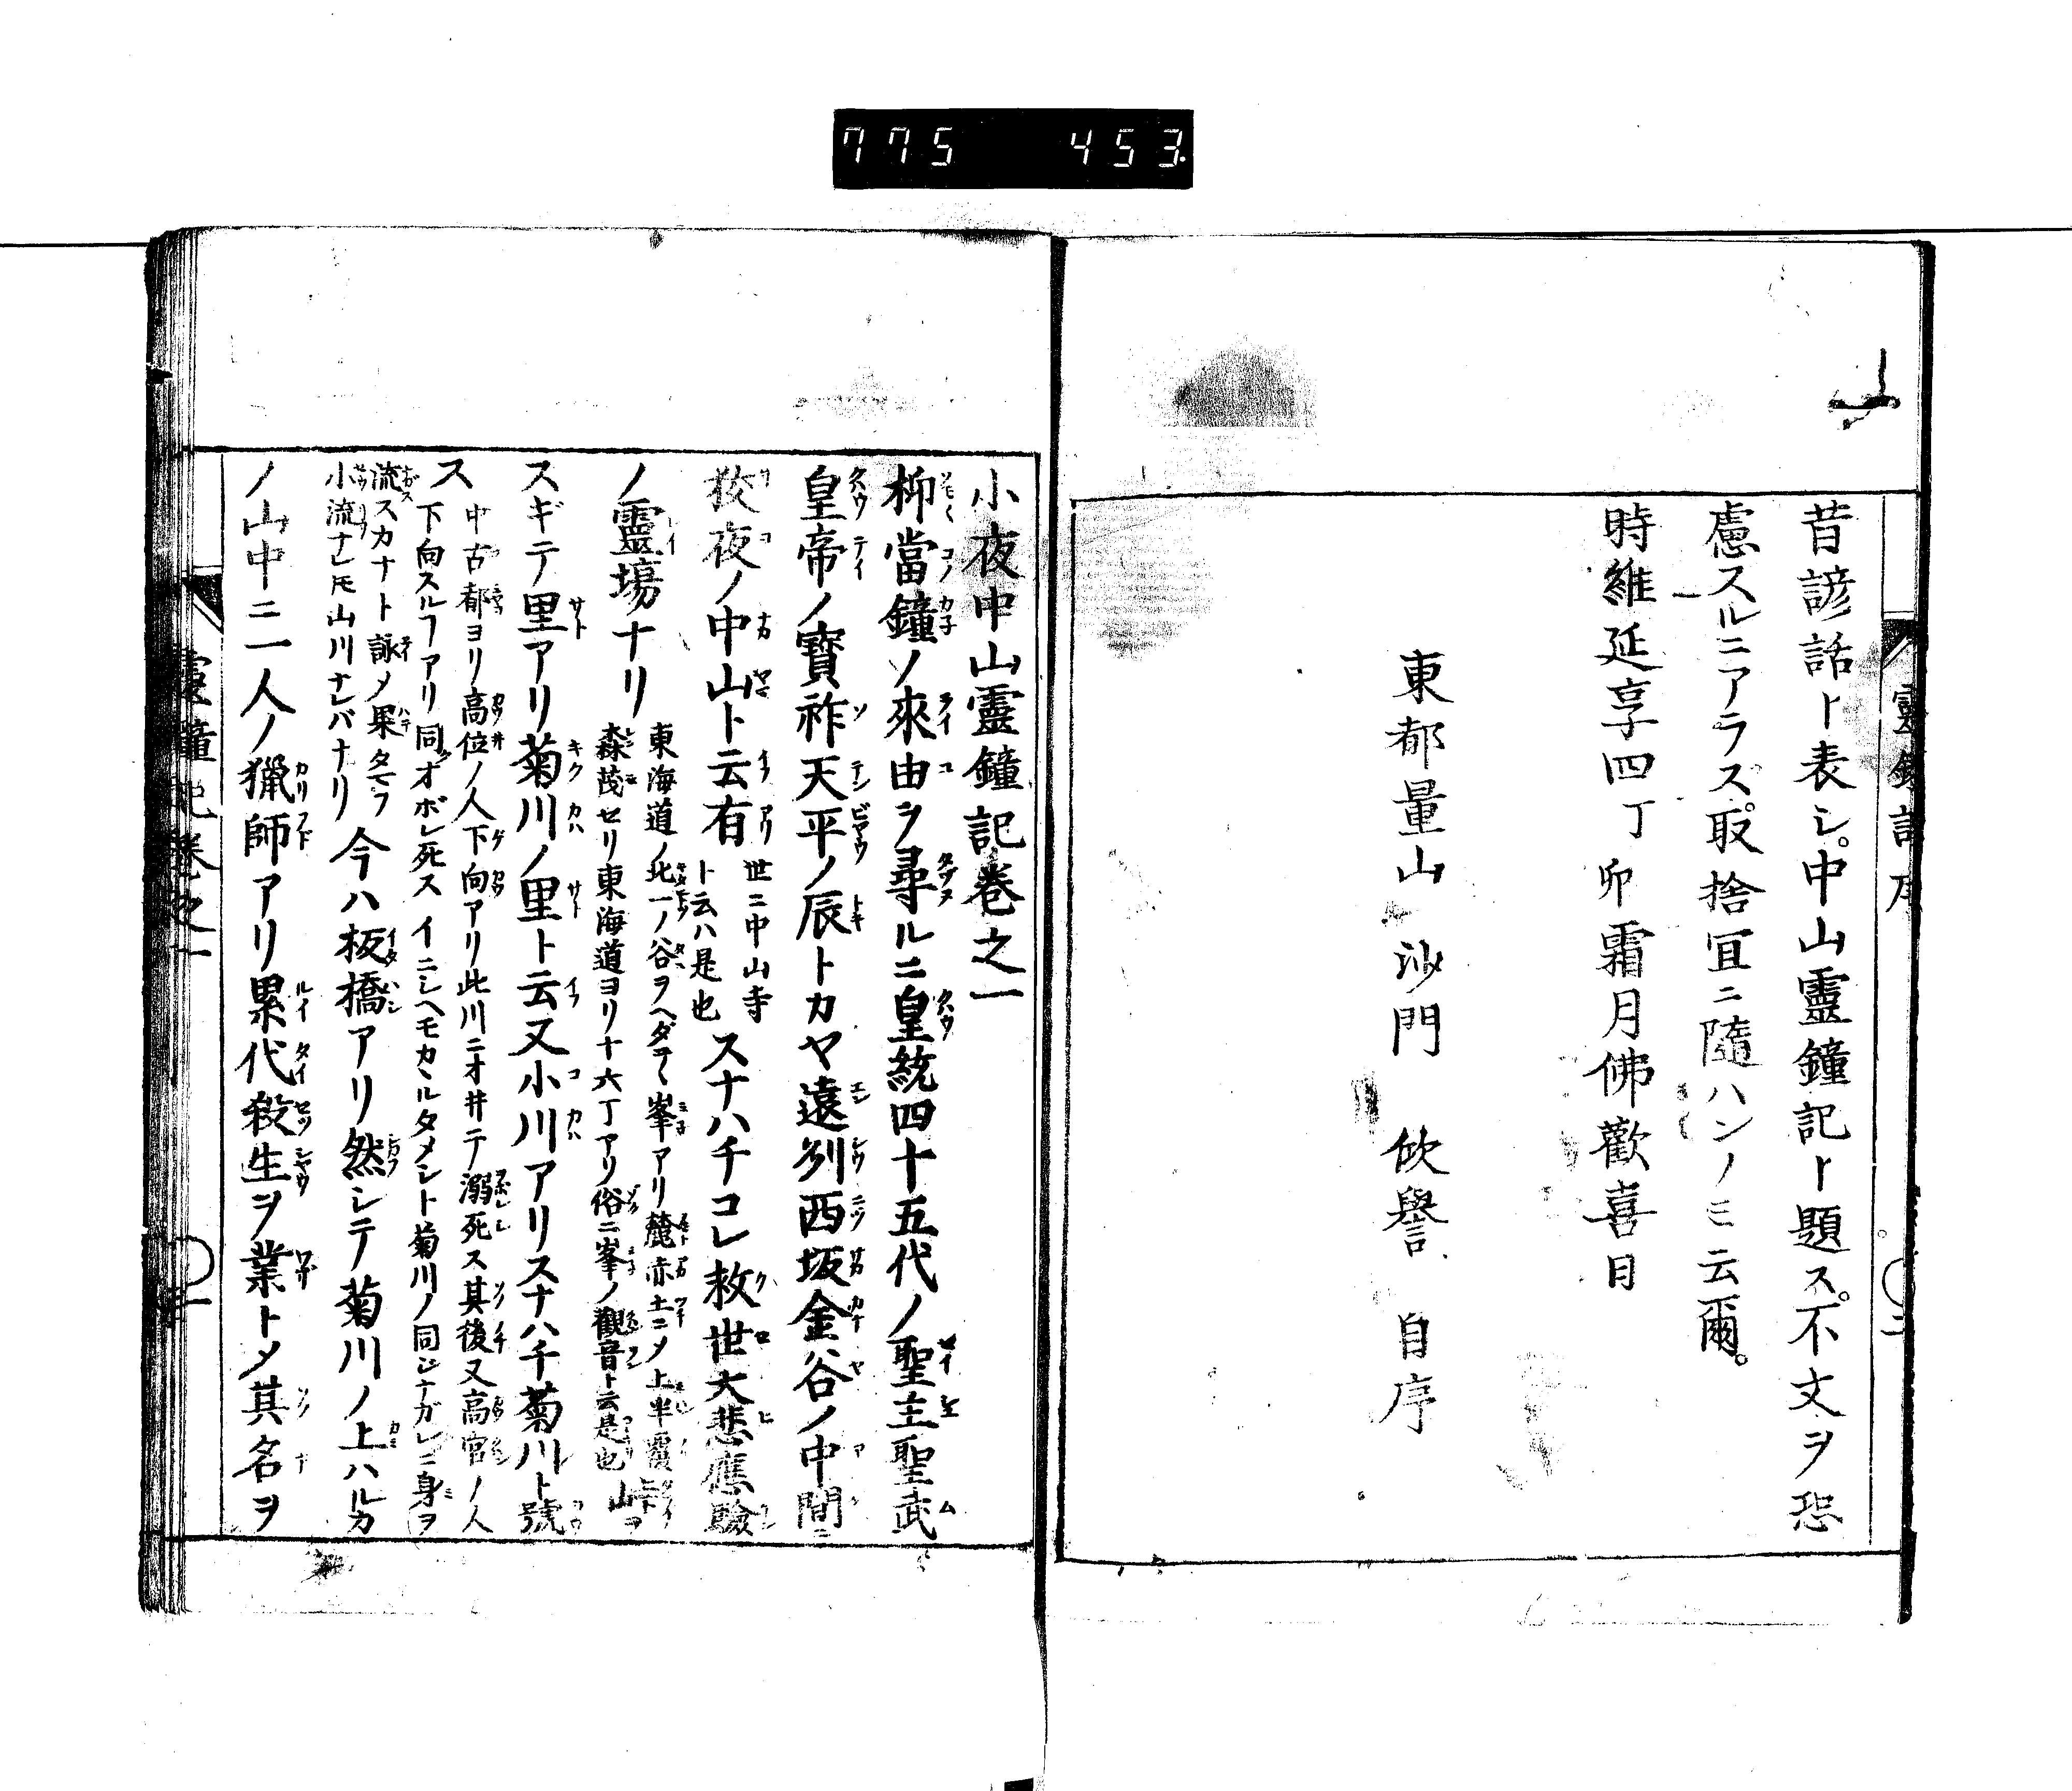 775 453
昔諺話ト表シ。中山靈鐘記ト題ス。不文ヲ恐
慮スルニアラズ。取捨宜ニ隨ハンノミ云爾。
時維延享四丁卯霜月佛歡喜日
東都量山沙門 欣誉 自序
小夜中山靈鐘記巻之一
抑當鐘ノ來由ヲ尋ルニ皇統四十五代ノ聖主聖武
皇帝ノ寳祚天平ノ辰トカヤ遠刕西坂金谷ノ中間ニ
狡夜ノ中山ト云有
世ニ中山寺
ト云ハ是也
スナハチコレ救世大悲應驗
ノ靈塲ナリ
東海道ノ北一ノ谷ヲヘダテヽ峯アリ麓赤土ニメ上半覆
森茂セリ東海道ヨリ十六丁アリ俗ニ峯ノ觀音ト云是也
山ヲ
スギテ里アリ菊川ノ里ト云又小川アリスナハチ菊川ト號
ス
中古都ヨリ高位ノ人下向アリ此川ニオ井テ溺死ス其後又高官ノ人
下向スルヿアリ同クオボレ死ス イニシヘモカヽルタメシト菊川ノ同ジナガレニ身ヲ
流スカナト詠メ果タモフ
小流ナレ𪜈山川ナレバナリ
今ハ板橋アリ然シテ菊川ノ上ハルカ
ノ山中ニ一人ノ獵師アリ累代殺生ヲ業トメ其名ヲ